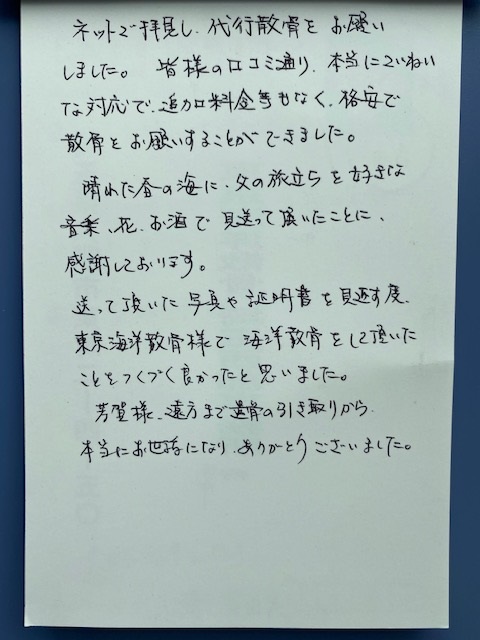 ネットで拝見し、代行散骨をお願い
しました。 皆様の口コミ通り、本当にていねい
な対応で、追加料金等もなく、格安で
散骨をお願いすることができました。
晴れた春の海に、父の旅立ちを好きな
音楽、花、お酒で見送って頂いたことに、
感謝しております。
送って頂いた写真や証明書を見返す度、
東京海洋散骨様で海洋散骨をして頂いた
ことをつくづく良かったと思いました。
芳賀様、遠方まで遺骨の引き取りから
本当にお世話になり、ありがとうございました。